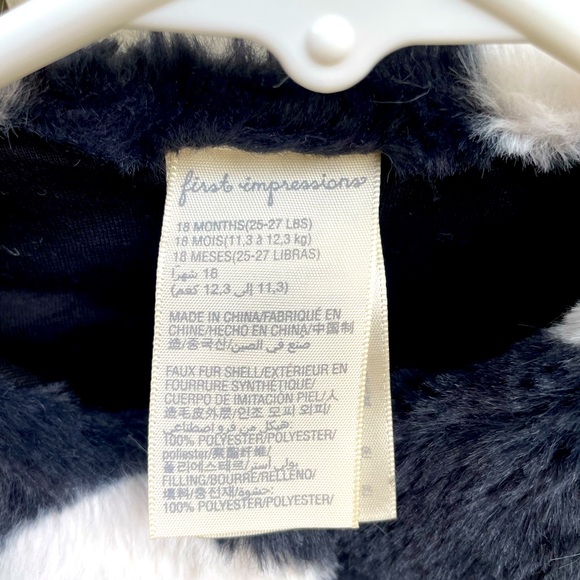 first impressions®
18 MONTHS(25-27 LBS)
18 MOIS(11,3 à 12,3 kg)
18 MESES(25-27 LIBRAS)
18 شهرًا
(11,3 إلى 12,3 كغم)
MADE IN CHINA/FABRIQUÉ EN
CHINE/HECHO EN CHINA/中国制
造/중국산/صنع في الصين
FAUX FUR SHELL/EXTÉRIEUR EN
FOURRURE SYNTHÉTIQUE/
CUERPO DE IMITACIÓN PIEL/人
造毛皮外层/인조 모피 외피/
هيكل من فرو اصطناعي
100% POLYESTER/POLYESTER/
poliester/聚酯纤维/
폴리에스테르/بولي أستر
FILLING/BOURRE/RELLENO/
填料/충전재/حشوة:
100% POLYESTER/POLYESTER/